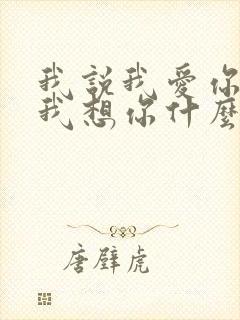 我說我愛你
我想你什麼
唐璧虎